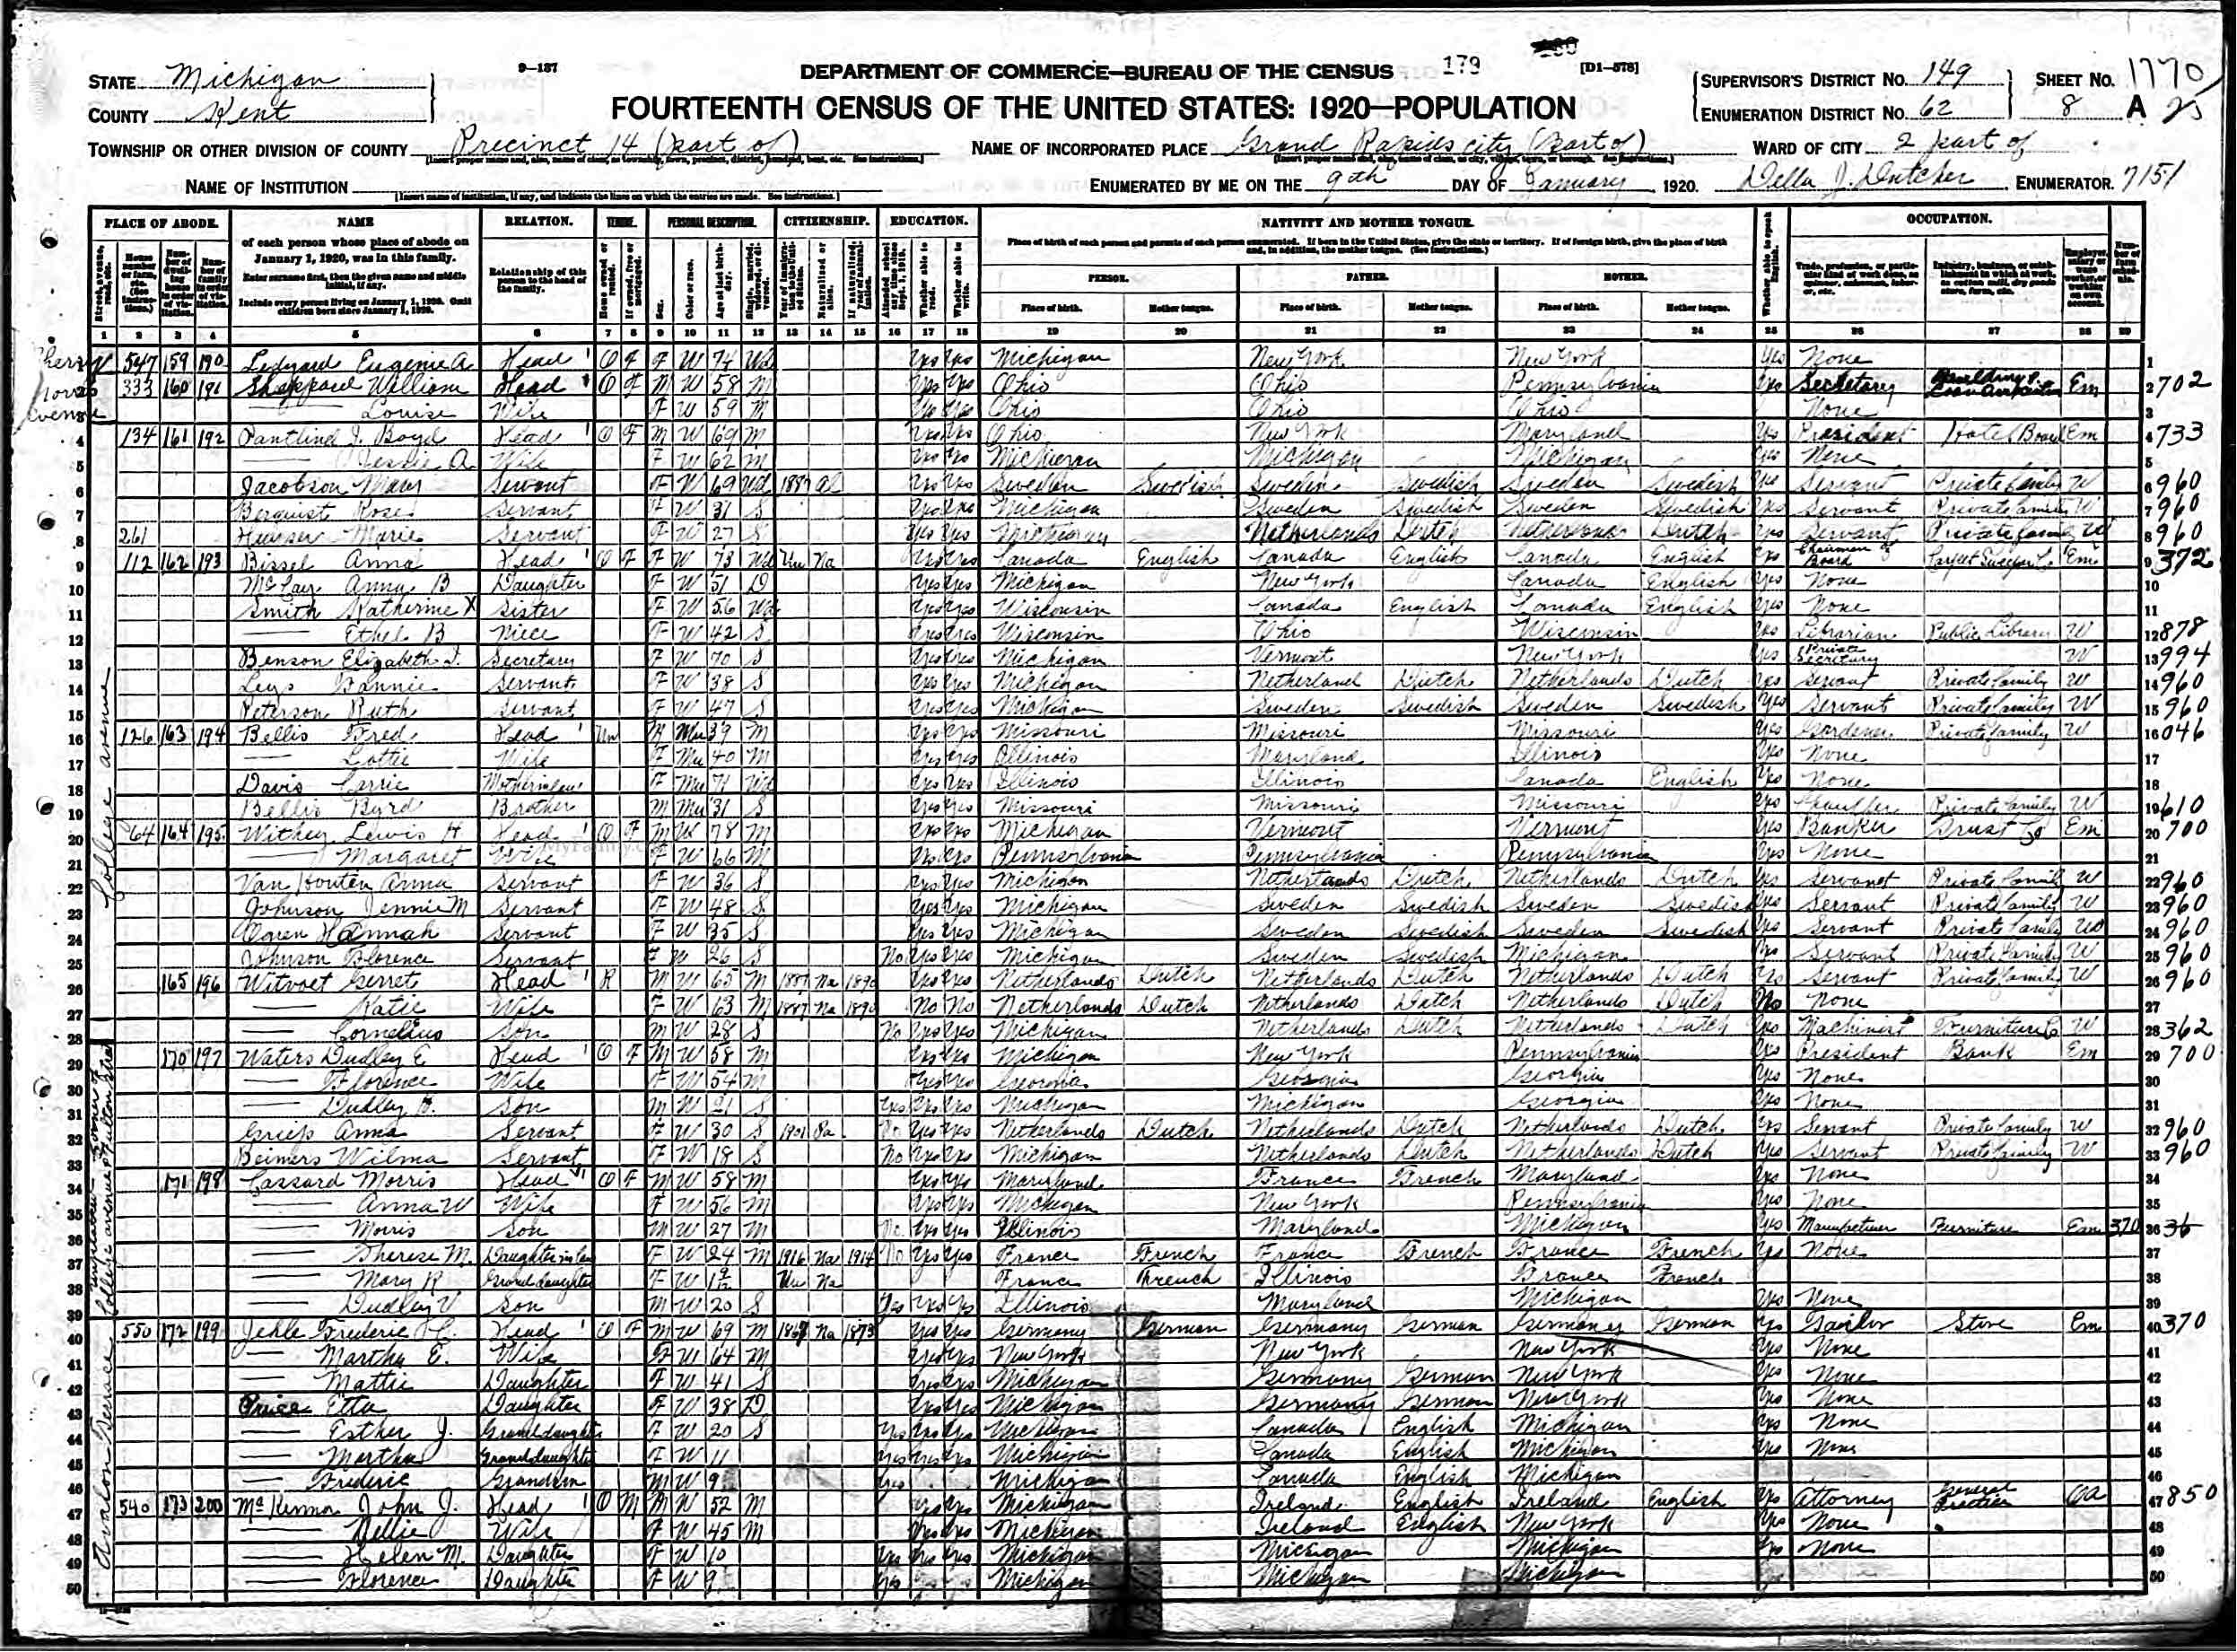 9—137
DEPARTMENT OF COMMERCE—BUREAU OF THE CENSUS 179 [D1—578]
FOURTEENTH CENSUS OF THE UNITED STATES: 1920—POPULATION
STATE Michigan
COUNTY Kent
SUPERVISOR'S DISTRICT No. 149 SHEET No. 1770
ENUMERATION DISTRICT No. 62 8 A
TOWNSHIP OR OTHER DIVISION OF COUNTY Precinct 14 (part of) NAME OF INCORPORATED PLACE Grand Rapids city (Part of) WARD OF CITY 2 part of
NAME OF INSTITUTION ENUMERATED BY ME ON THE 9th DAY OF January 1920. Della J. Dutcher ENUMERATOR. 7151
PLACE OF ABODE. NAME RELATION. TENURE. PERSONAL DESCRIPTION. CITIZENSHIP. EDUCATION. NATIVITY AND MOTHER TONGUE. OCCUPATION.
of each person whose place of abode on January 1, 1920, was in this family.
Enter surname first, then the given name and middle initial, if any.
Include every person living on January 1, 1920. Omit children born since January 1, 1920.
Relationship of this person to the head of the family.
PERSON. FATHER. MOTHER.
Place of birth. Mother tongue. Place of birth. Mother tongue. Place of birth. Mother tongue.
1 2 3 4 5 6 7 8 9 10 11 12 13 14 15 16 17 18 19 20 21 22 23 24 25 26 27 28 29
547 159 190 Ledyard Eugenie A. Head O F F W 74 Wd Yes Yes Michigan New York New York Yes None 1
333 160 191 Sheppard William Head O F M W 58 M Yes Yes Ohio Ohio Pennsylvania Yes Secretary Em 2 702
Louise Wife F W 59 M Yes Yes Ohio Ohio Ohio None 3
134 161 192 Pantlind J. Boyd Head O F M W 69 M Yes Yes Ohio New York Maryland Yes President Hotel Board Em 4 733
Jessie A. Wife F W 62 M Yes Yes Michigan Michigan Michigan Yes None 5
Jacobson Mary Servant F W 69 Wd 1887 Al Yes Yes Sweden Swedish Sweden Swedish Sweden Swedish Yes Servant Private family W 6 960
Berquist Rose Servant F W 31 S Yes Yes Michigan Sweden Swedish Sweden Swedish Yes Servant Private family W 7 960
261 Marie Servant F W 27 S Yes Yes Michigan Netherlands Dutch Netherlands Dutch Yes Servant Private family W 8 960
112 162 193 Bissel Anna Head O F F W 73 Wd Un Na Yes Yes Canada English Canada English Canada English Yes Chairman of Board Carpet Sweeper Co. Em 9 372
Anna B Daughter F W 51 D Yes Yes Michigan New York Canada English Yes None 10
Smith Katherine Sister F W 56 Wd Yes Yes Wisconsin Canada English Canada English Yes None 11
Ethel B Niece F W 42 S Yes Yes Wisconsin Ohio Wisconsin Yes Librarian Public Library W 12 878
Benson Elizabeth J. Secretary F W 70 S Yes Yes Michigan Vermont New York Yes Private Secretary W 13 994
Leys Fannie Servant F W 38 S Yes Yes Michigan Netherland Dutch Netherlands Dutch Yes Servant Private family W 14 960
Peterson Ruth Servant F W 47 S Yes Yes Michigan Sweden Swedish Sweden Swedish Yes Servant Private family W 15 960
126 163 194 Bellis Fred Head Un M Mu 39 M Yes Yes Missouri Missouri Missouri Yes Gardener Private family W 16 046
Lottie Wife F Mu 40 M Yes Yes Illinois Maryland Illinois Yes None 17
Davis Carrie Mother in law F Mu 71 Wd Yes Yes Illinois Illinois Canada English Yes None 18
Bellis Byrd Brother M Mu 31 S Yes Yes Missouri Missouri Missouri Yes Chauffer Private family W 19 610
64 164 195 Withey Lewis H Head O F M W 78 M Yes Yes Michigan Vermont Vermont Yes Banker Trust Co Em 20 700
Margaret Wife F W 66 M Yes Yes Pennsylvania Pennsylvania Pennsylvania Yes None 21
Van Houten Anna Servant F W 36 S Yes Yes Michigan Netherlands Dutch Netherlands Dutch Yes Servant Private family W 22 960
Johnson Jennie M Servant F W 48 S Yes Yes Michigan Sweden Swedish Sweden Swedish Yes Servant Private family W 23 960
Ogren Hannah Servant F W 35 S Yes Yes Michigan Sweden Swedish Sweden Swedish Yes Servant Private family W 24 960
Johnson Florence Servant F W 26 S No Yes Yes Michigan Sweden Swedish Michigan Yes Servant Private family W 25 960
165 196 Witvoet Gerret Head R M W 65 M 1887 Na 1890 Yes Yes Netherlands Dutch Netherlands Dutch Netherlands Dutch Yes Servant Private family W 26 960
Katie Wife F W 63 M 1887 Na 1890 No No Netherlands Dutch Netherlands Dutch Netherlands Dutch No None 27
Cornelius Son M W 28 S No Yes Yes Michigan Netherlands Dutch Netherlands Dutch Yes Machinist Furniture Co W 28 362
170 197 Waters Dudley E Head O F M W 58 M Yes Yes Michigan New York Pennsylvania Yes President Bank Em 29 700
Florence Wife F W 54 M Yes Yes Georgia Georgia Georgia Yes None 30
Dudley H. Son M W 21 S Yes Yes Yes Michigan Michigan Georgia Yes None 31
Anna Servant F W 30 S 1901 Pa No Yes Yes Netherlands Dutch Netherlands Dutch Netherlands Dutch Yes Servant Private family W 32 960
Beimers Wilma Servant F W 18 S No Yes Yes Michigan Netherlands Dutch Netherlands Dutch Yes Servant Private family W 33 960
171 198 Cassard Morris Head O F M W 58 M Yes Yes Maryland France French Maryland Yes None 34
Anna W Wife F W 56 M Yes Yes Michigan New York Pennsylvania Yes None 35
Morris Son M W 27 M No Yes Yes Illinois Maryland Michigan Yes Manufacturer Furniture Em 370 36
Therese M. Daughter in law F W 24 M 1916 Na 1914 No Yes Yes France French France French France French Yes None 37
Mary R Granddaughter F W Un Na France French Illinois France French 38
Dudley V Son M W 20 S Yes Yes Yes Illinois Maryland Michigan Yes None 39
550 172 199 Jehle Frederic C. Head O F M W 69 M Na 1873 Yes Yes Germany German Germany German Germany German Yes Store Em 40 370
Martha E. Wife F W 64 M Yes Yes New York New York New York Yes None 41
Mattie Daughter F W 41 S Yes Yes Michigan Germany German New York Yes None 42
Price Etta Daughter F W 38 D Yes Yes Michigan Germany German New York Yes None 43
Esther J. Granddaughter F W 20 S Yes Yes Yes Michigan Canada English Michigan Yes None 44
Martha Granddaughter F W 11 Yes Yes Yes Michigan Canada English Michigan Yes None 45
Frederic Grandson M W 9 Yes Michigan Canada English Michigan 46
540 173 200 McKenna John J. Head O M M W 52 M Yes Yes Michigan Ireland English Ireland English Yes Attorney General Practice Oa 47 850
Nellie Wife F W 45 M Yes Yes Michigan Ireland English New York Yes None 48
Helen M. Daughter F W 10 Yes Yes Yes Michigan Michigan Michigan Yes None 49
Florence Daughter F W 9 Yes Michigan Michigan Michigan 50
Cherry
Norris Avenue
College avenue
Avalon Terrace